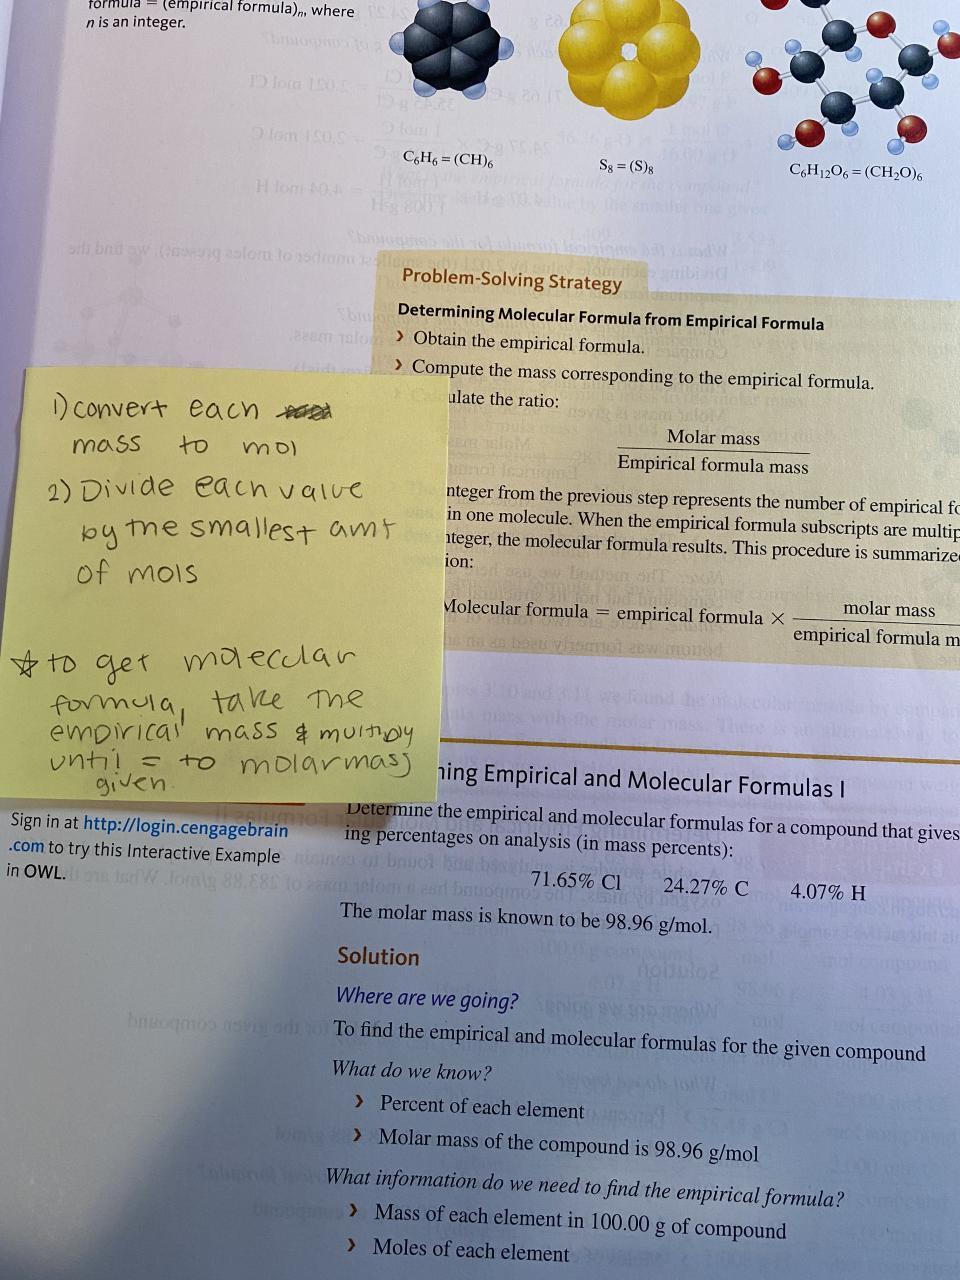 formula = (empirical formula)n, where
n is an integer.
C6H6 = (CH)6
S8 = (S)8
C6H12O6 = (CH2O)6
Problem-Solving Strategy
Determining Molecular Formula from Empirical Formula
› Obtain the empirical formula.
› Compute the mass corresponding to the empirical formula.
ulate the ratio:
Molar mass
Empirical formula mass
nteger from the previous step represents the number of empirical fo
in one molecule. When the empirical formula subscripts are multip
nteger, the molecular formula results. This procedure is summarize
ion:
Molecular formula = empirical formula × molar mass
empirical formula m
1) convert each
mass to mol
2) Divide each value
by the smallest amt
of mols
☆ to get molecular
formula, take the
empirical mass & multiply
until = to molarmass
given.
ning Empirical and Molecular Formulas I
Determine the empirical and molecular formulas for a compound that gives
ing percentages on analysis (in mass percents):
71.65% Cl 24.27% C 4.07% H
The molar mass is known to be 98.96 g/mol.
Sign in at http://login.cengagebrain
.com to try this Interactive Example
in OWL.
Solution
Where are we going?
To find the empirical and molecular formulas for the given compound
What do we know?
› Percent of each element
› Molar mass of the compound is 98.96 g/mol
What information do we need to find the empirical formula?
› Mass of each element in 100.00 g of compound
› Moles of each element